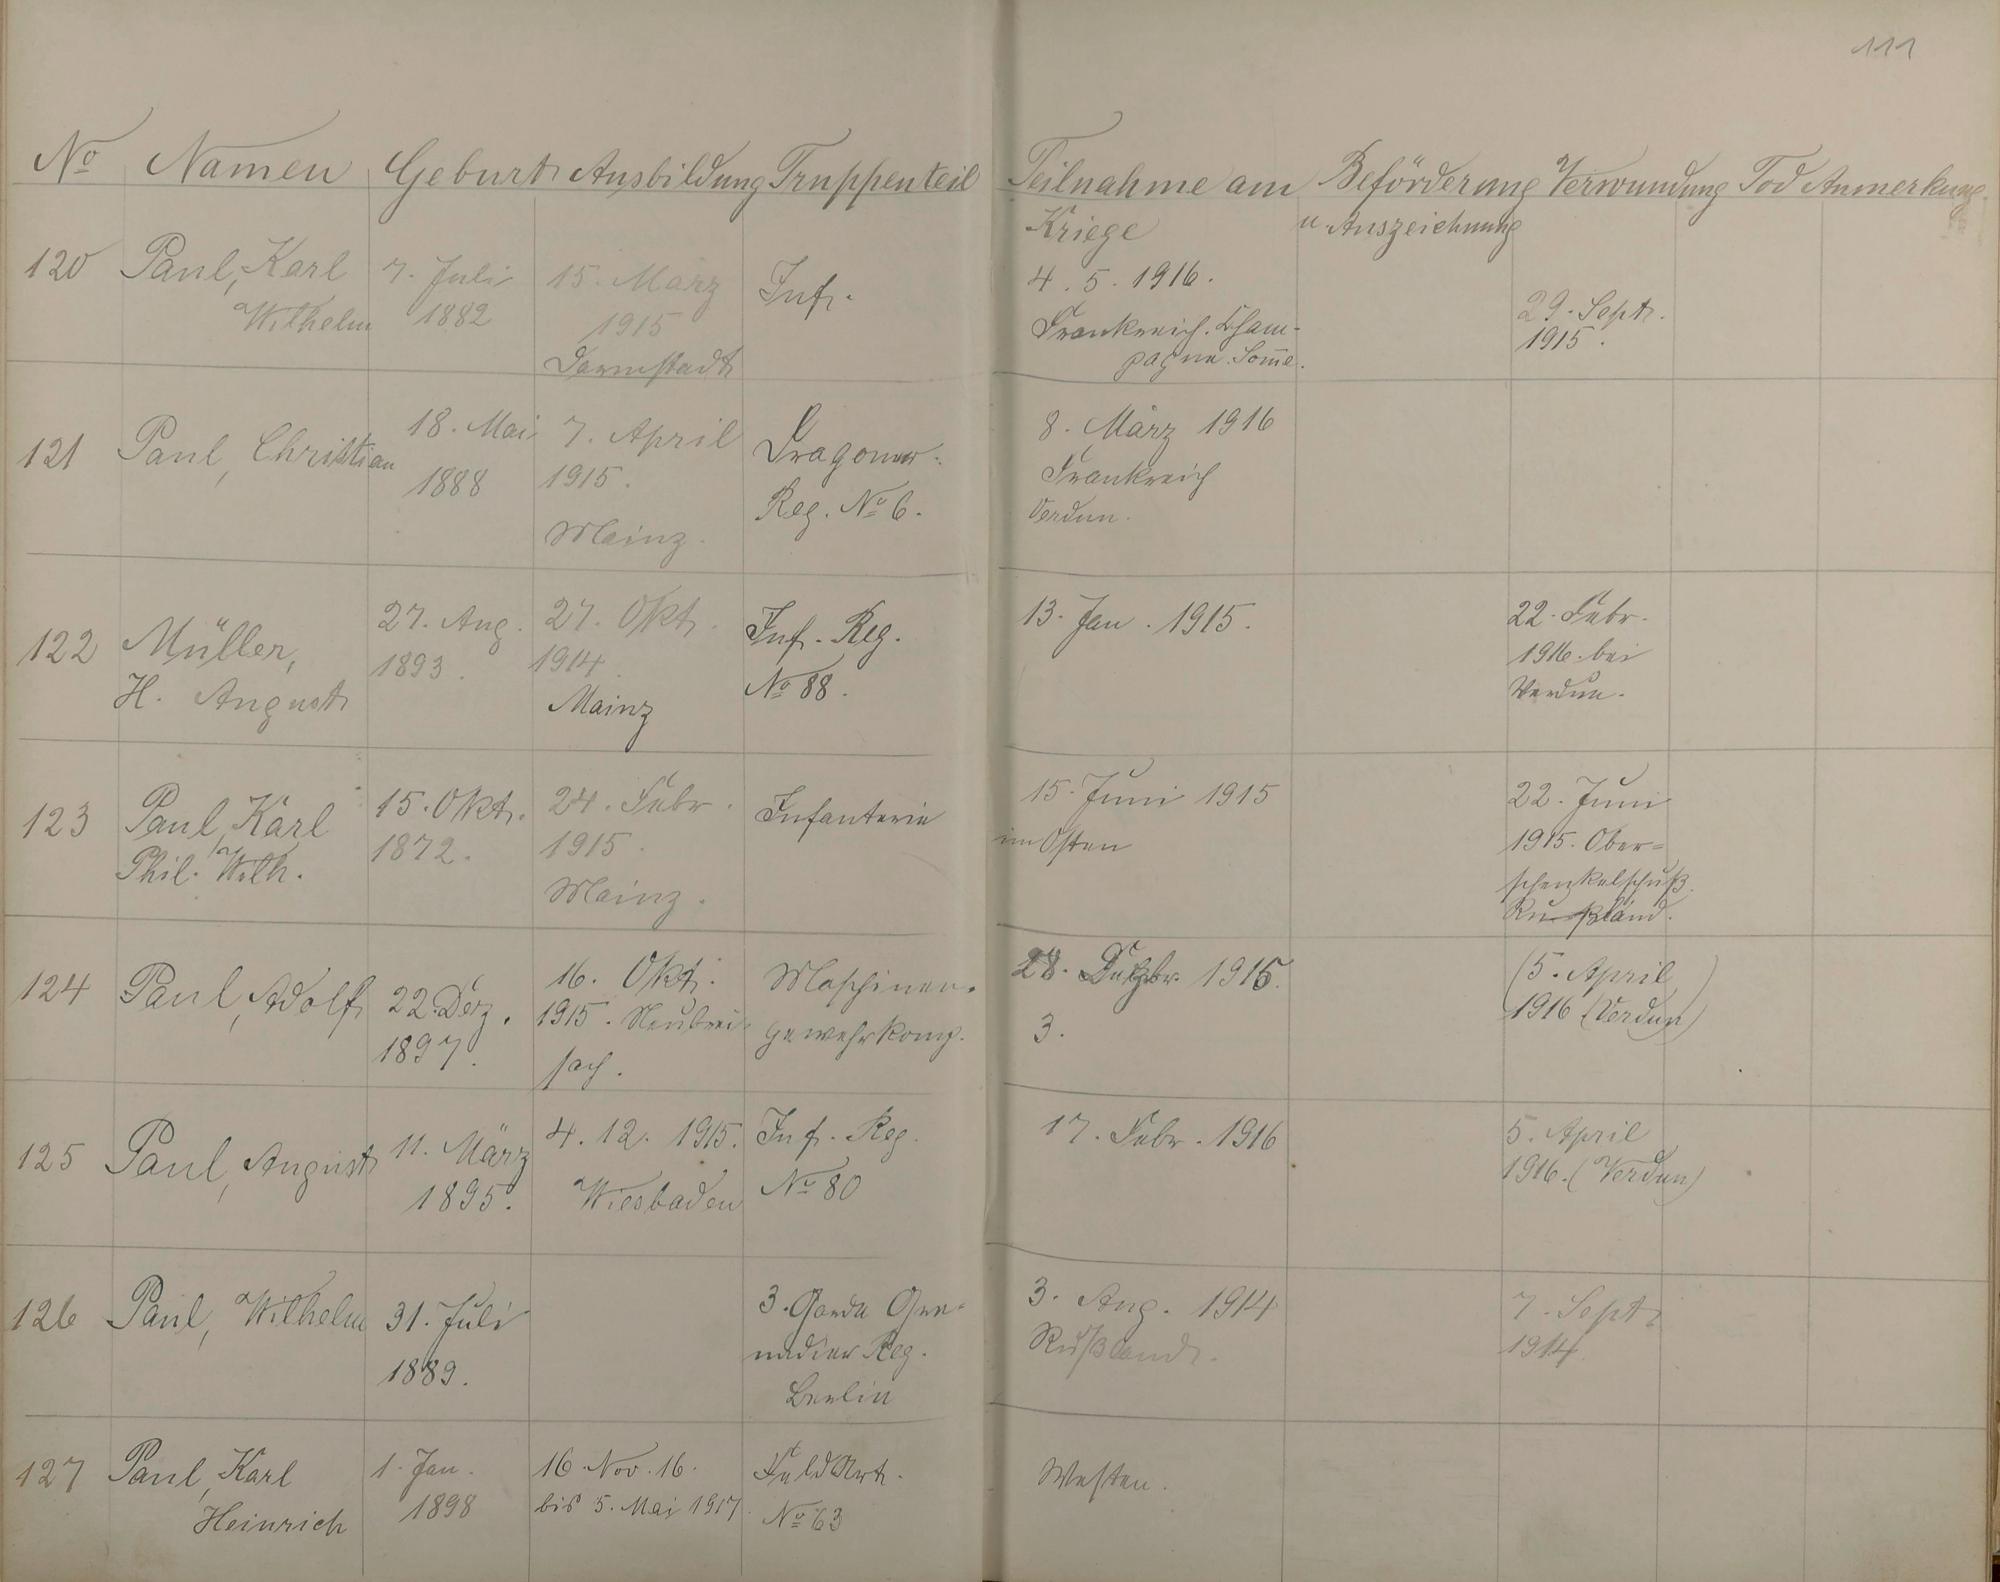 111
No Namen Geburt Ausbildung Truppenteil Teilnahme am Kriege Beförderung u Auszeichnung Verwundung Tod Anmerkung
120 Paul, Karl
Wilhelm
7. Juli
1882
15. März
1915
Darmstadt
Inf.
4. 5. 1916.
Frankreich. Cham-
pagne. Som̄e.
29. Sept.
1915.
121 Paul, Christian
18. Mai
1888
7. April
1915.
Mainz.
Dragoner-
Reg. No 6.
8. März 1916
Frankreich
Verdun.
122 Müller,
H. August
27. Aug.
1893.
27. Okt.
1914.
Mainz
Inf. Reg.
No 88.
13. Jan. 1915.
22. Febr.
1916. bei
Verdun.
123 Paul, Karl
Phil. Wilh.
15. Okt.
1872.
24. Febr.
1915.
Mainz.
Infanterie
15. Juni 1915
im Osten
22. Juni
1915. Ober-
schenkelschuß.
Rußland.
124 Paul, Adolf
22. Dez.
1897.
16. Okt.
1915. Neubrei-
sach.
Maschinen-
gewehrkomp.
28. 1916.
3.
(5. April)
1916 (Verdun)
125 Paul, August
11. März
1895.
4. 12. 1915.
Wiesbaden
Inf. Reg.
No 80
17. Febr. 1916
5. April
1916. (Verdun)
126 Paul, Wilhelm
31. Juli
1889.
3. Garde Gre-
nadier Reg.
Berlin
3. Aug. 1914
Rußland.
7. Sept.
1914.
127 Paul, Karl
Heinrich
1. Jan.
1898
16. Nov. 16.
bis 5. Mai 1917.
Feld Art.
No 63
Westen.